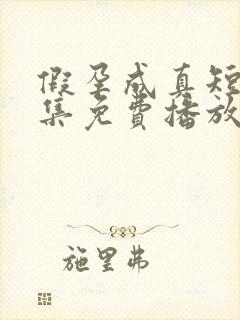 假孕成真短
集免费播放
施里弗